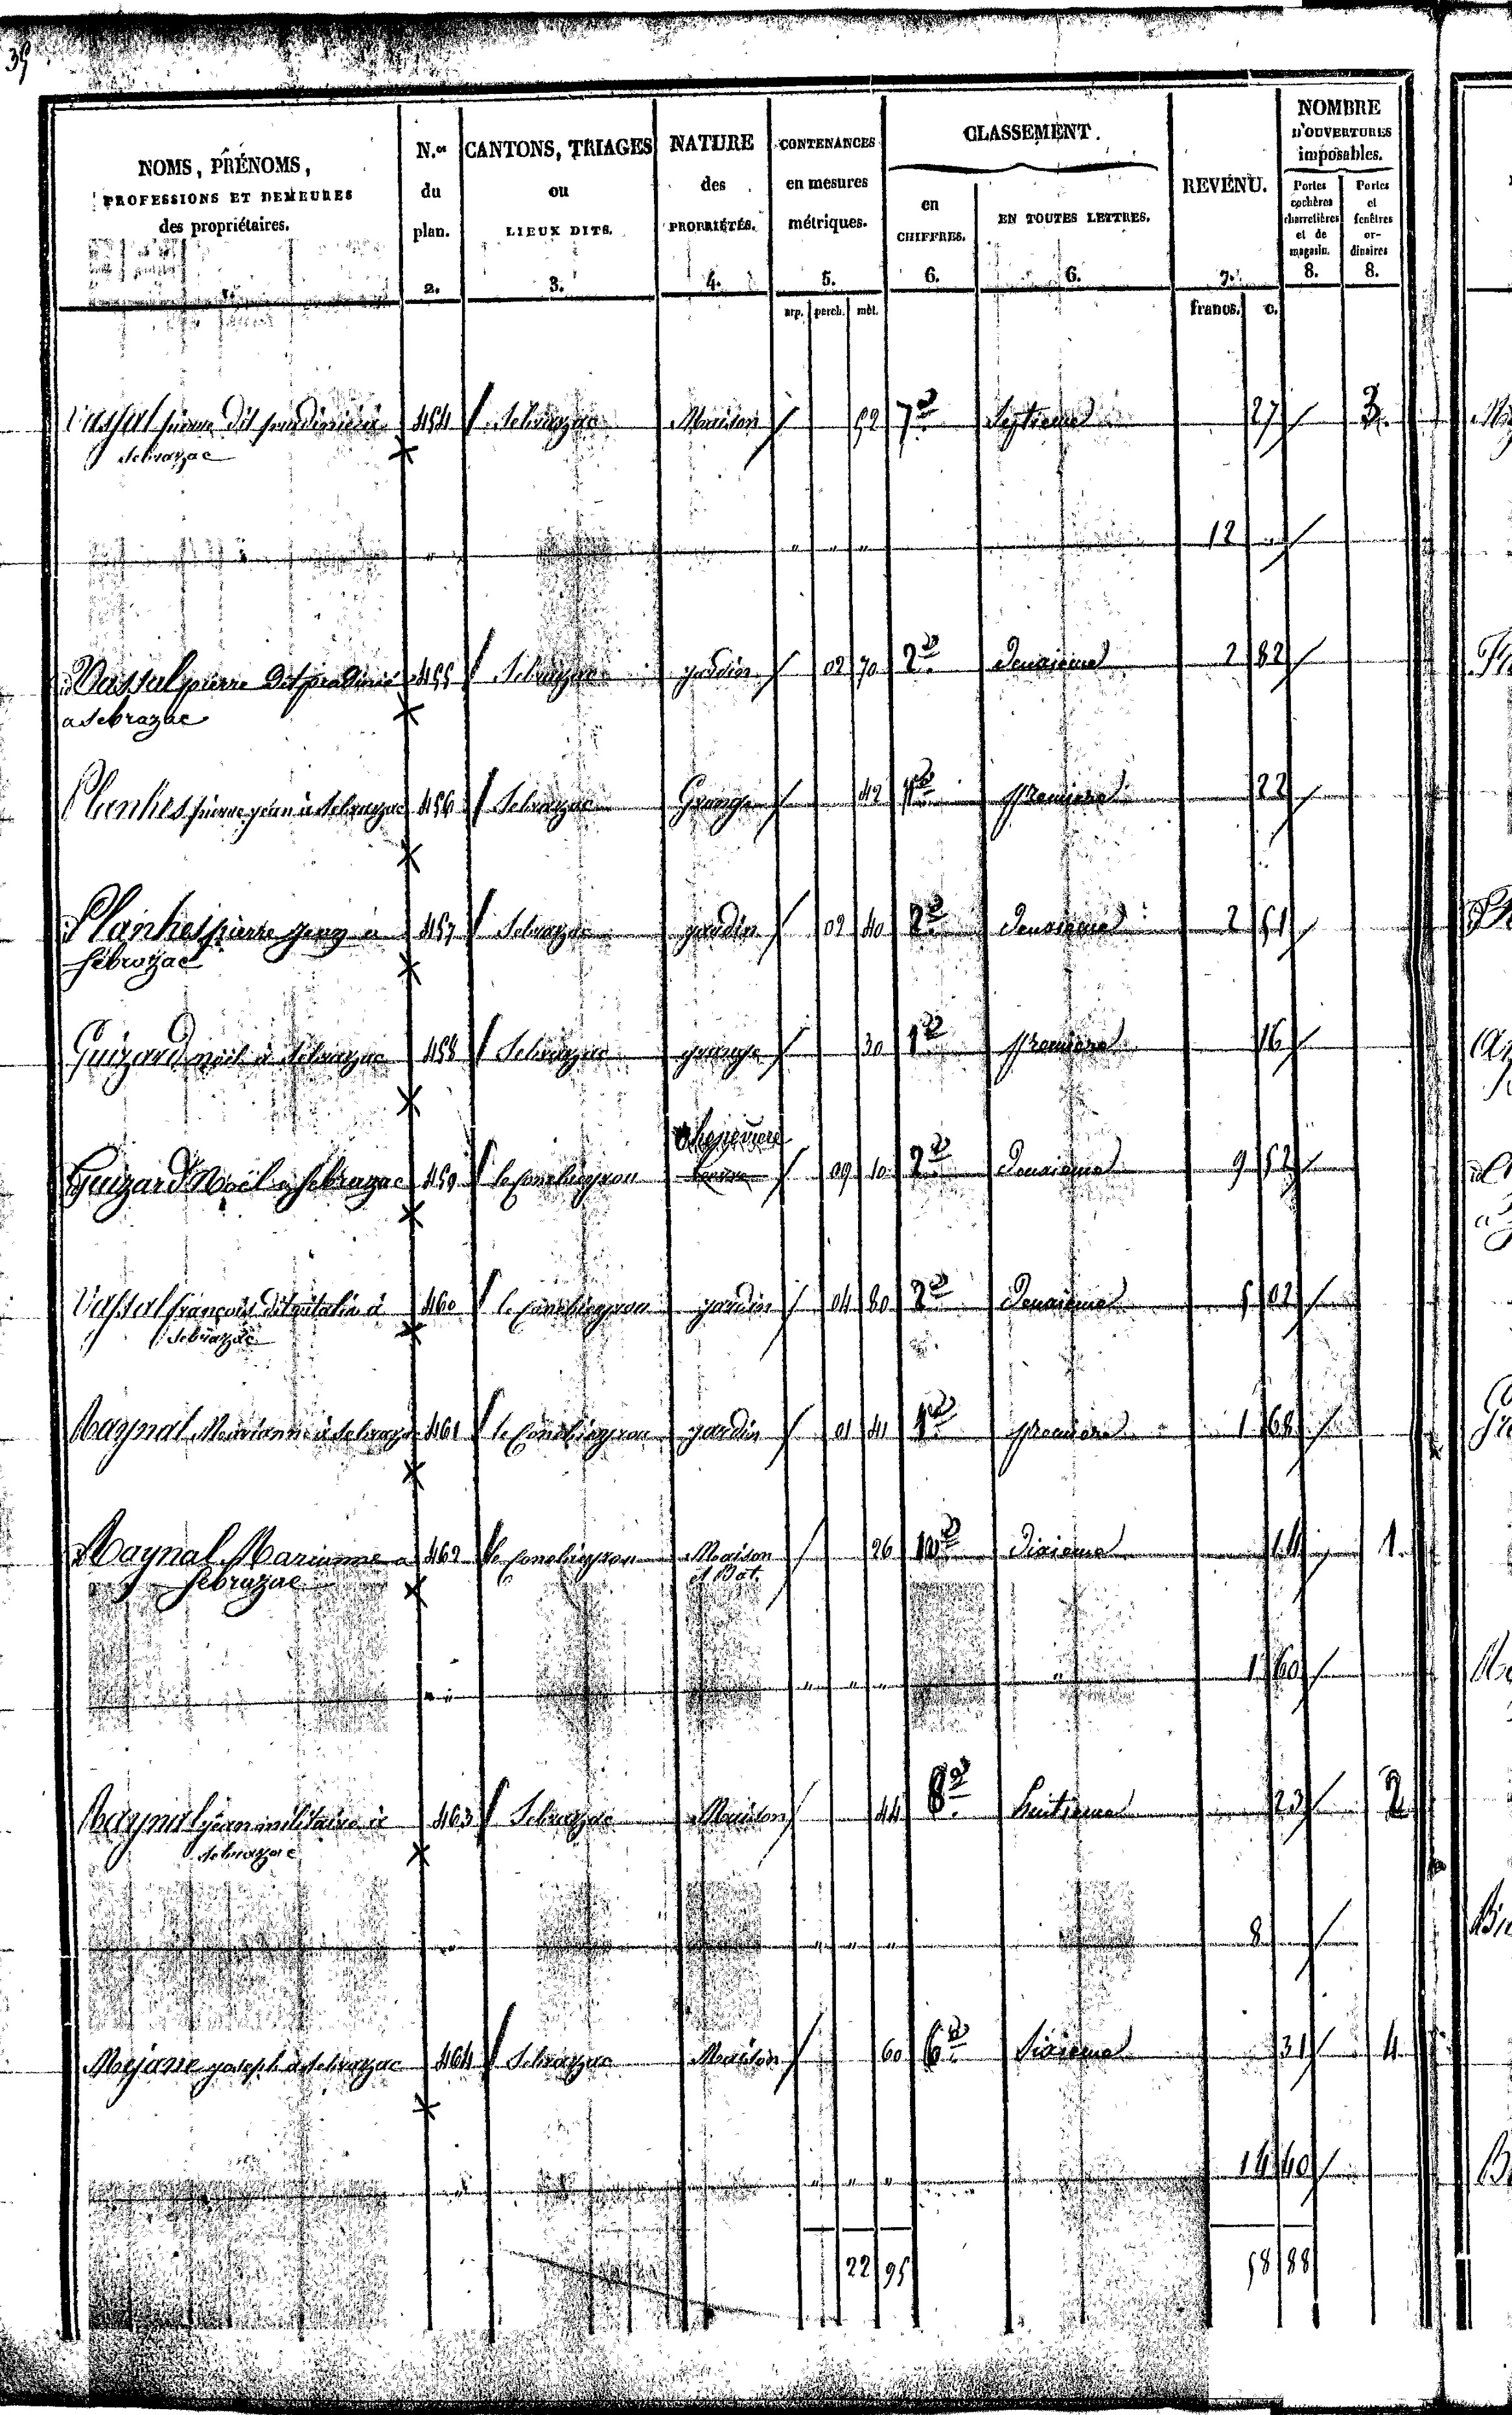 39
NOMS, PRÉNOMS,
PROFESSIONS ET DEMEURES
des propriétaires.
N.os
du
plan.
2.
CANTONS, TRIAGES
ou
LIEUX DITS.
3.
NATURE
des
PROPRIÉTÉS.
4.
CONTENANCES
en mesures
métriques.
5.
arp. perch. mèt.
CLASSEMENT.
en
CHIFFRES.
6.
EN TOUTES LETTRES.
6.
REVENU.
7.
francs. c.
NOMBRE
D'OUVERTURES
imposables.
Portes
cochères
charretières
et de
magasin.
8.
Portes
et
fenêtres
or-
dinaires
8.
Vassal pierre dit 454 Sebrazac Maison 52 7e Septieme 27 3
Sebrazac
" " " " 12 "
Vassal pierre dit 455 Sebrazac jardin 02 70 2e Deuxieme 2 82
a Sebrazac
Planhes pierre jean à Sebrazac 456 Sebrazac Grange 42 1e premiere 22
Planhes pierre jean a 457 Sebrazac jardin 02 40 2e Deuxieme 2 51
Sebrazac
Guizard noël à Sebrazac 458 Sebrazac grange 30 1e premiere 16
Cheneviere
Guizard Noël a Sebrazac 459 le Conchieyrou 09 10 2e Deuxieme 9 52
Vassal françois dit à 460 le Conchieyrou jardin 04 80 2e Deuxieme 5 02
Sebrazac
Raynal Marianne à Sebrazac 461 le Conchieyrou jardin 01 41 1e premiere 1 68
Raynal Marianne a 462 le Conchieyrou Maison 26 10e Dixieme 14 1
Sebrazac et Bat.
" " " " " 1 60
Raynal jean militaire à 463 Sebrazac Maison 44 8e huitieme 23 2
Sebrazac
" " " " 8
Mejane joseph à Sebrazac 464 Sebrazac Maison 60 6e Sixieme 31 4
" " " " 14 40
22 95 58 88